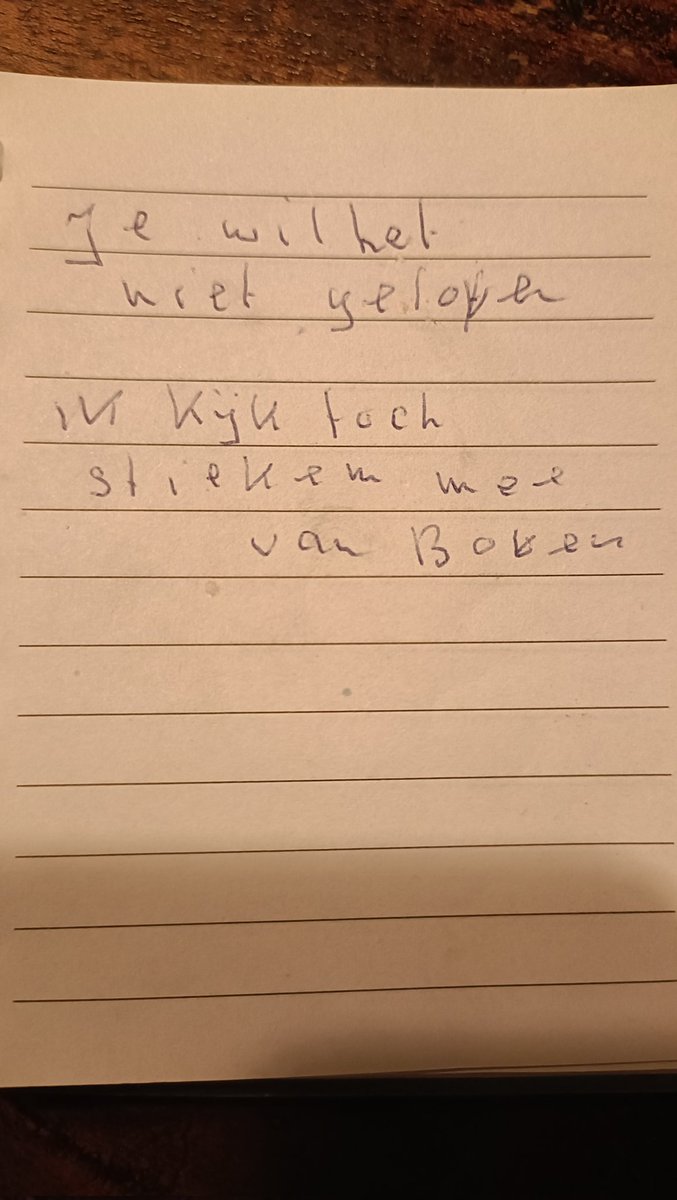 Je wil het
niet geloven
ik kijk toch
stiekem mee
van Boven